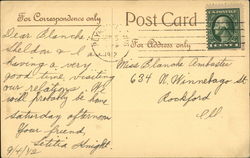 For Correspondence only
Post Card
For Address only
Dear Blanche:
Sheldon & I
having a very
good time, visiting
our relatives. We
will probably be home
Saturday afternoon
Your friend,
Letitia Knight.
9/4/12
Miss Blanche
634 N. Winnebago St
Rockford
Ill